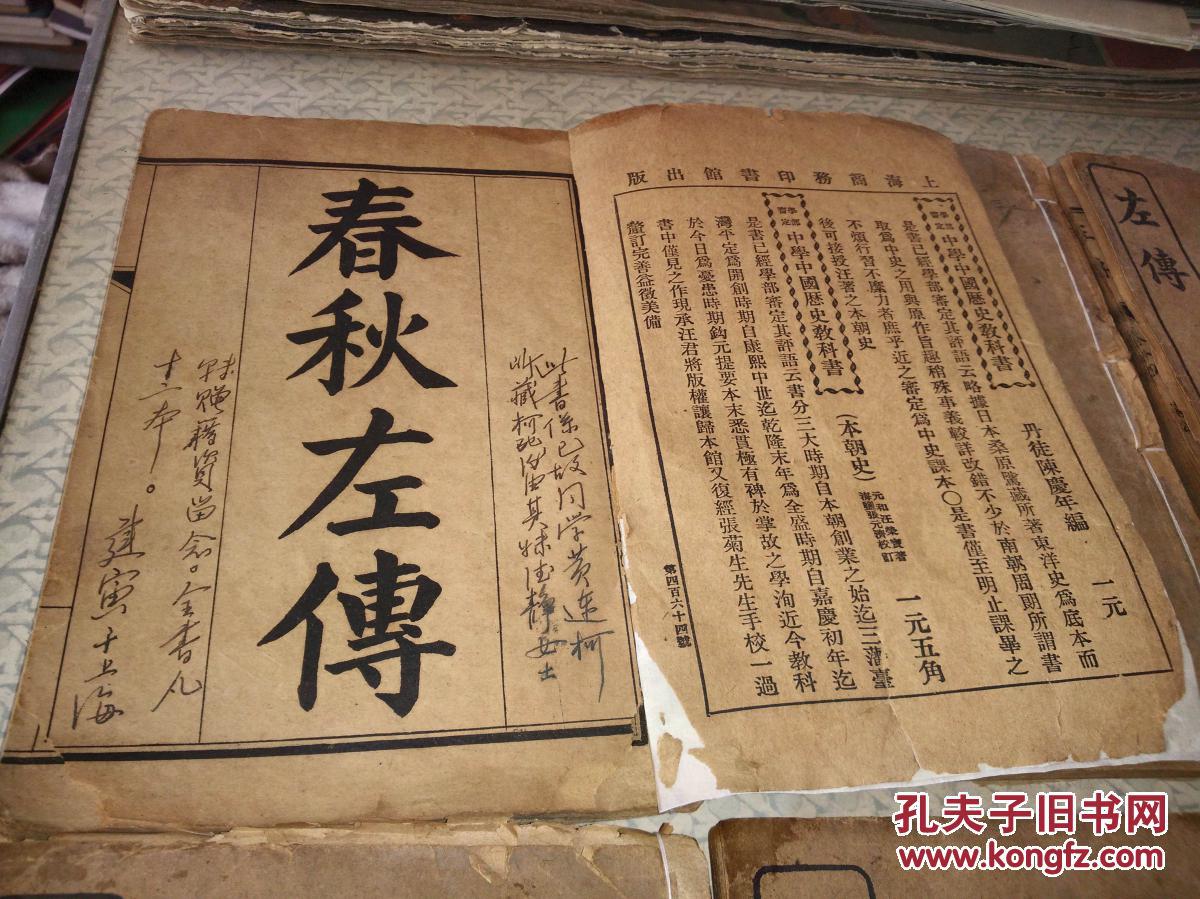 上海商務印書館出版
學部審定 中學中國歷史教科書 丹徒陳慶年編 一元
是書已經學部審定其評語云略據日本桑原隲藏所著東洋史爲底本而
取爲中史之用與原作旨趣稍殊事義較詳改錯不少於南朝周朗所謂書
不煩行習不糜力者庶乎近之審定爲中史課本〇是書僅至明止課畢之
後可接投汪著之本朝史
學部審定 中學中國歷史教科書 (本朝史) 元和汪榮寶著 海鹽張元濟校訂 一元五角
是書已經學部審定其評語云書分三大時期自本朝創業之始迄三藩臺
灣平定爲開創時期自康熙中世迄乾隆末年爲全盛時期自嘉慶初年迄
於今日爲憂患時期鈎元提要本末悉貫極有裨於掌故之學洵近今教科
書中僅見之作現承汪君將版權讓歸本館又復經張菊生先生手校一過
釐訂完善益徵美備
第四百六十四號
春秋左傳
此書係已故同学黄連柯
收藏柯死後由其妹德靜女士
轉贈藉資留念。全書凡
十二本。
建寅于上海
左傳
孔夫子旧书网
www.kongfz.com